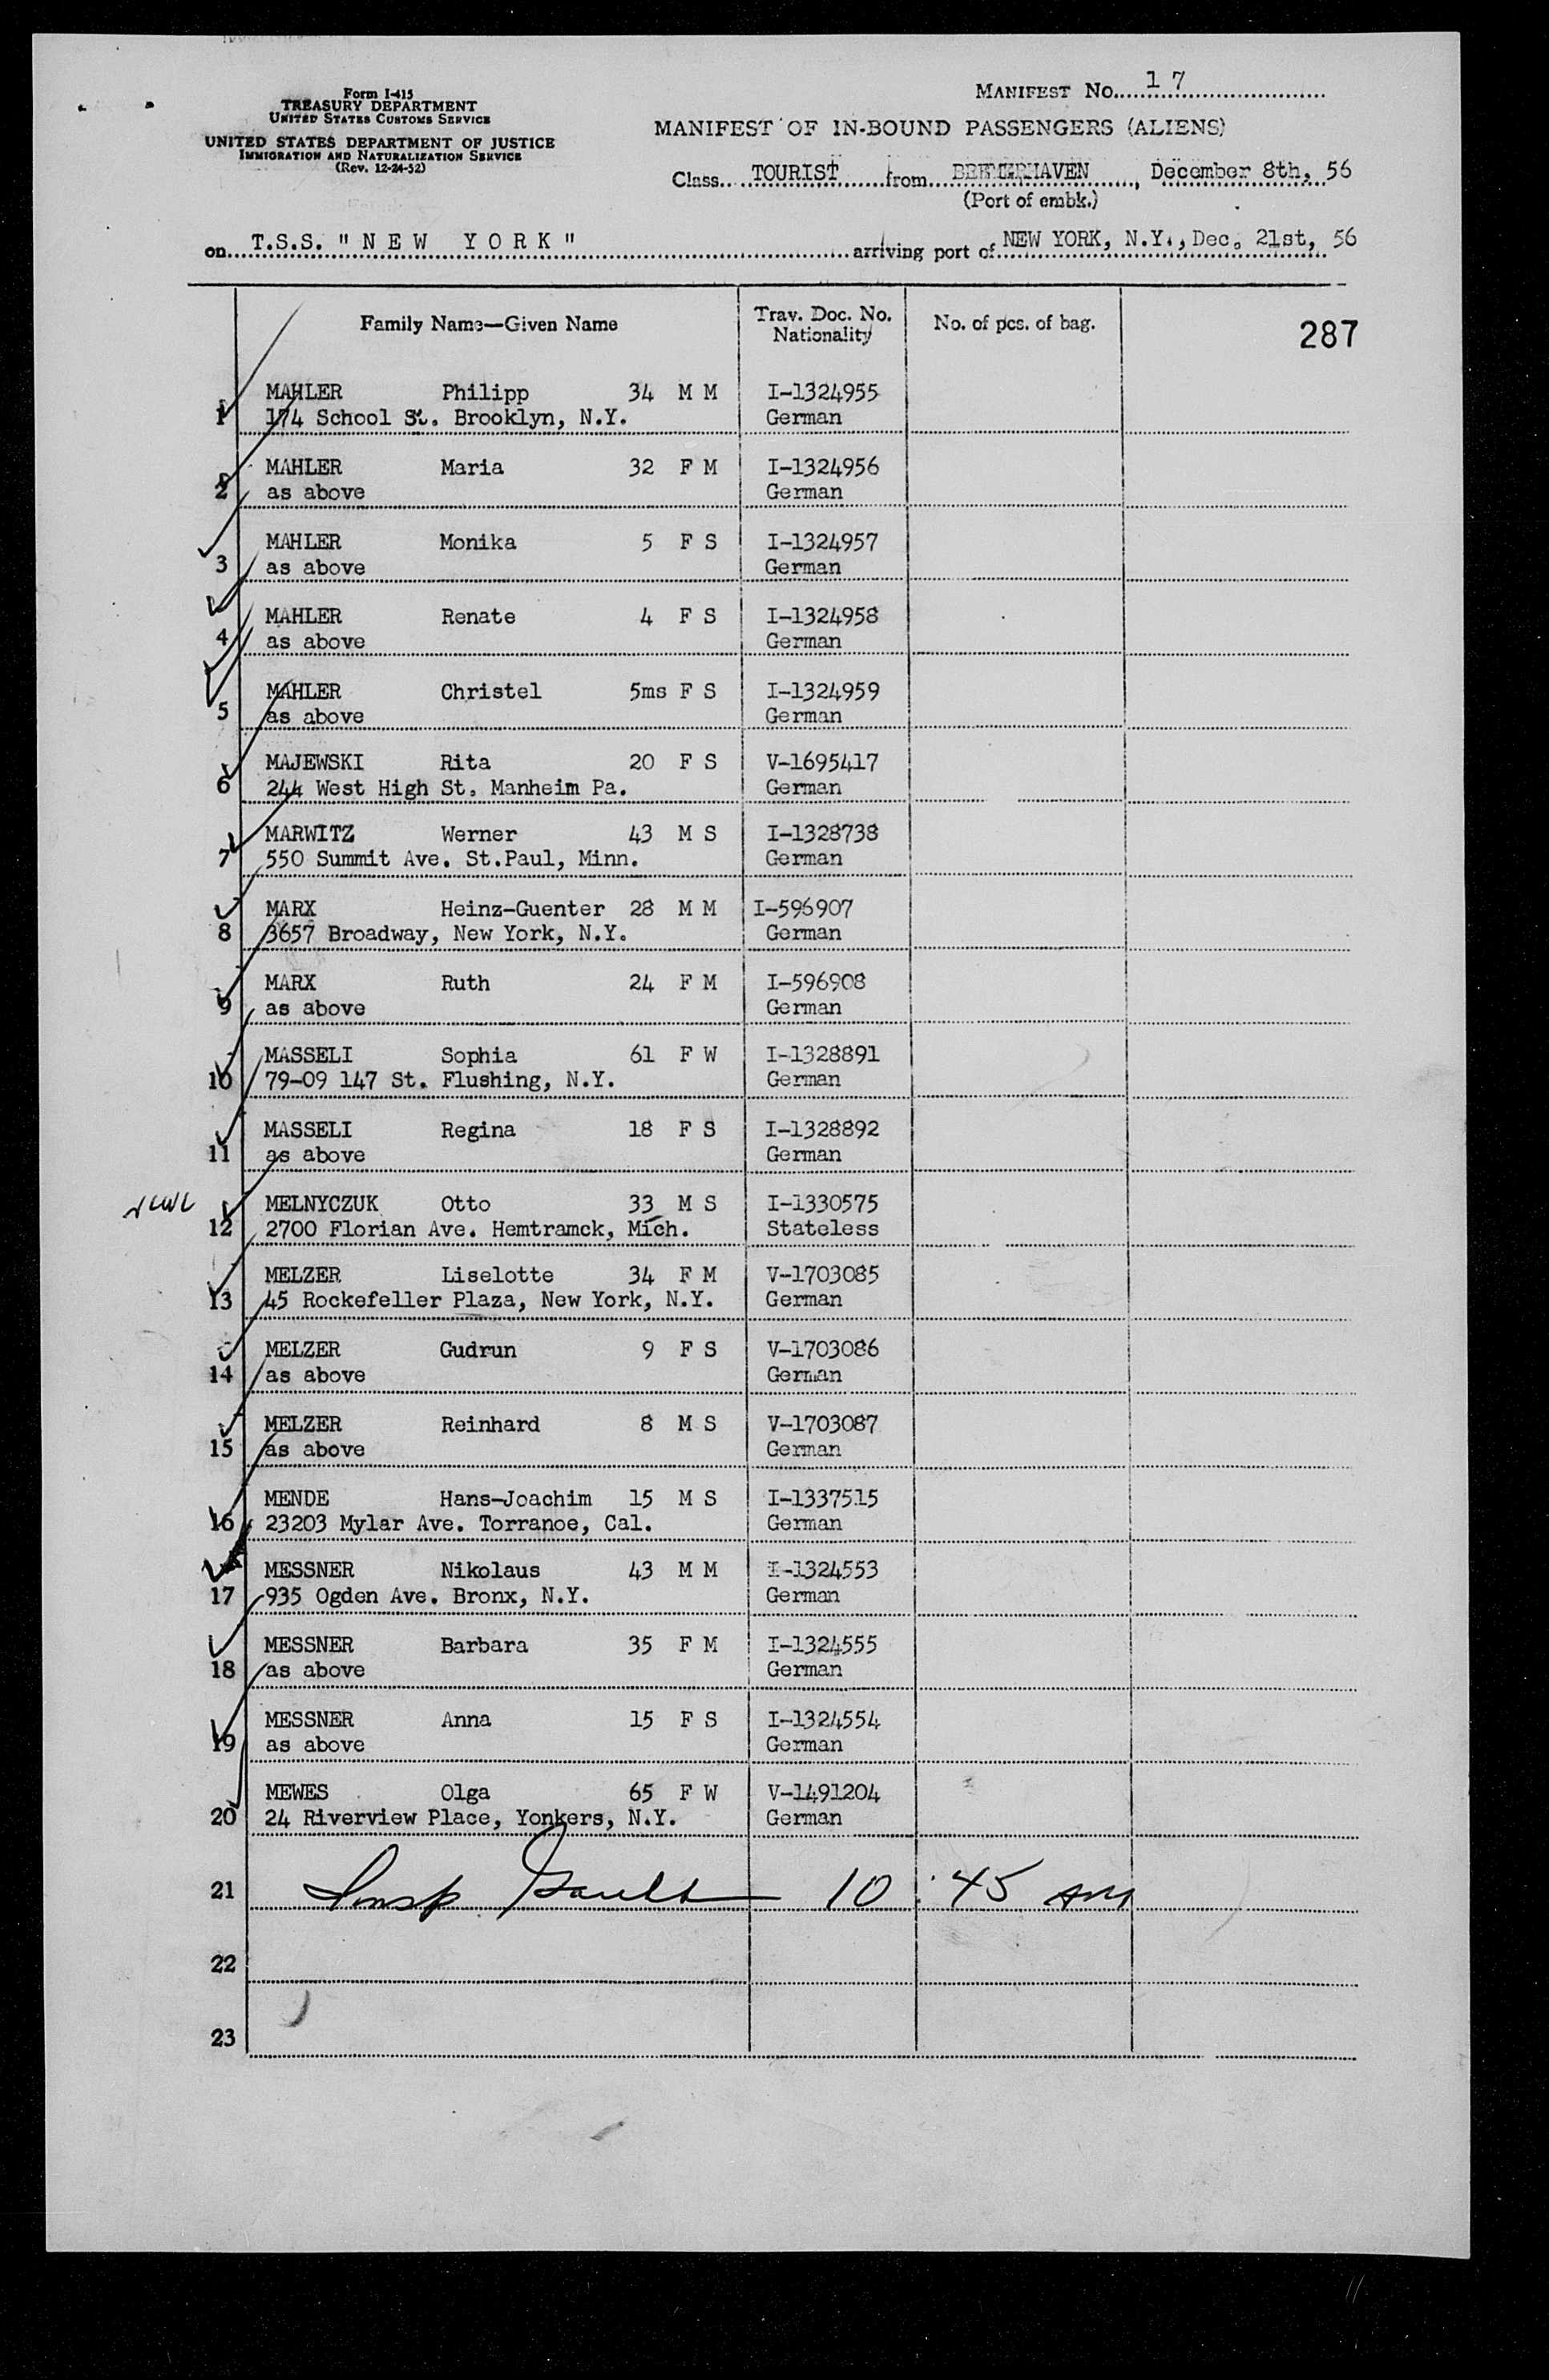 Form I-415
TREASURY DEPARTMENT
UNITED STATES CUSTOMS SERVICE
UNITED STATES DEPARTMENT OF JUSTICE
IMMIGRATION AND NATURALIZATION SERVICE
(Rev. 12-24-52)
MANIFEST No. 17
MANIFEST OF IN-BOUND PASSENGERS (ALIENS)
Class TOURIST from BREMERHAVEN, December 8th, 56
(Port of embk.)
on T.S.S. "NEW YORK" arriving port of NEW YORK, N.Y., Dec. 21st, 56
Family Name—Given Name Trav. Doc. No. Nationality No. of pcs. of bag. 287
MAHLER Philipp 34 M M I-1324955
1 174 School St. Brooklyn, N.Y. German
MAHLER Maria 32 F M I-1324956
2 as above German
MAHLER Monika 5 F S I-1324957
3 as above German
MAHLER Renate 4 F S I-1324958
4 as above German
MAHLER Christel 5ms F S I-1324959
5 as above German
MAJEWSKI Rita 20 F S V-1695417
6 244 West High St. Manheim Pa. German
MARWITZ Werner 43 M S I-1328738
7 550 Summit Ave. St.Paul, Minn. German
MARX Heinz-Guenter 28 M M I-596907
8 3657 Broadway, New York, N.Y. German
MARX Ruth 24 F M I-596908
9 as above German
MASSELI Sophia 61 F W I-1328891
10 79-09 147 St. Flushing, N.Y. German
MASSELI Regina 18 F S I-1328892
11 as above German
MELNYCZUK Otto 33 M S I-1330575
12 2700 Florian Ave. Hemtramck, Mich. Stateless
MELZER Liselotte 34 F M V-1703085
13 45 Rockefeller Plaza, New York, N.Y. German
MELZER Gudrun 9 F S V-1703086
14 as above German
MELZER Reinhard 8 M S V-1703087
15 as above German
MENDE Hans-Joachim 15 M S I-1337515
16 23203 Mylar Ave. Torranoe, Cal. German
MESSNER Nikolaus 43 M M I-1324553
17 935 Ogden Ave. Bronx, N.Y. German
MESSNER Barbara 35 F M I-1324555
18 as above German
MESSNER Anna 15 F S I-1324554
19 as above German
MEWES Olga 65 F W V-1491204
20 24 Riverview Place, Yonkers, N.Y. German
21 Insp 10:45 am
22
23